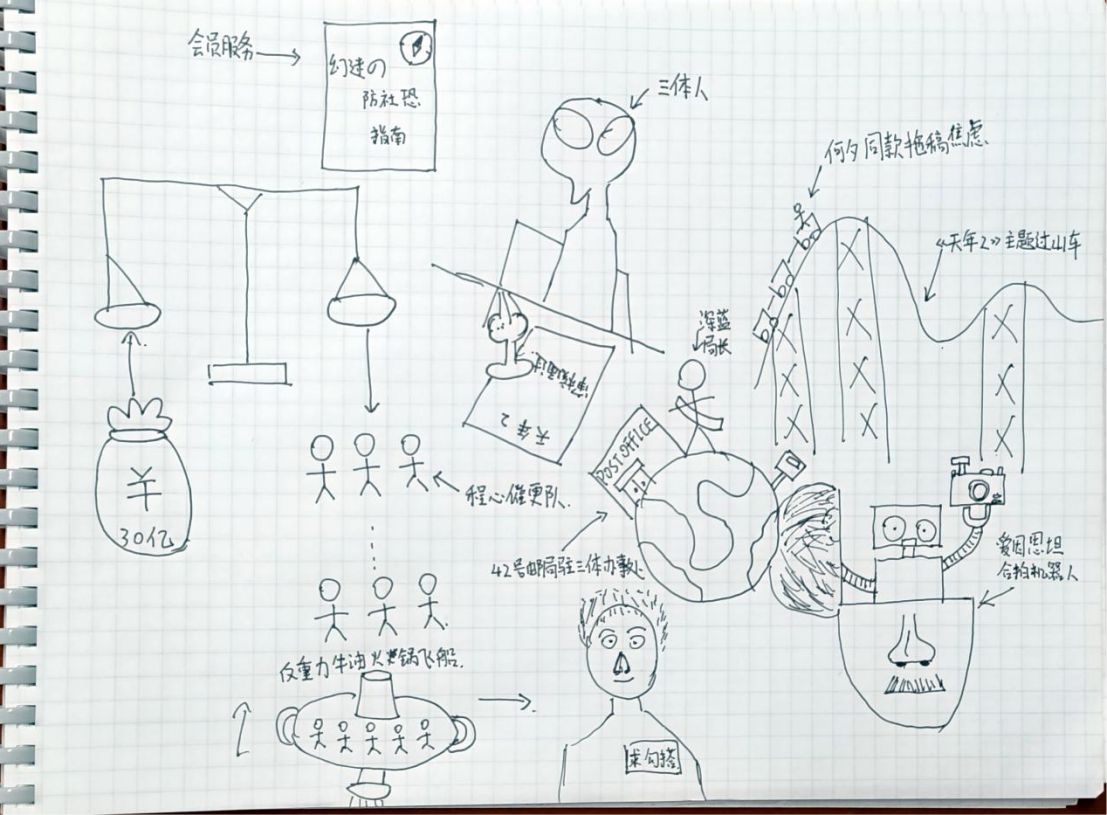 会员服务
幻迷の
防社恐
指南
三体人
何夕同款拖稿焦虑
《天年2》主题过山车
深蓝
局长
天年2
POST OFFICE
¥
30亿
程心催更队.
42号邮局驻三体办事处
爱因思坦
合拍机器人
反重力牛油火锅飞船.
求勾搭